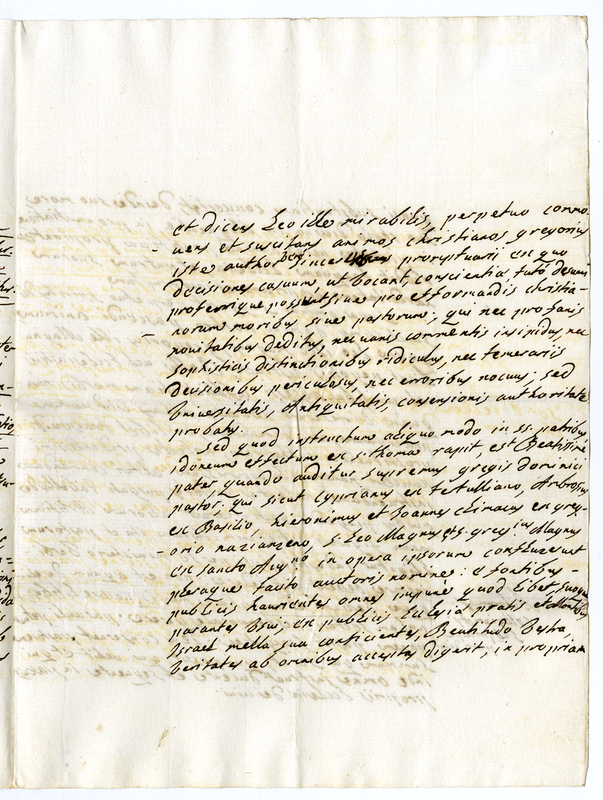 et dicens Leo ille mirabilis, perpetuo commo-
uens et suscitans animos christianos gregorius
iste author promptuarii ex quo
decisiones casuum, ut vocant, conscientiæ tutò desumi
proferrique possint siue pro efformandis christia-
norum moribus siue pastorum; qui nec profanis
nouitatibus deditus, nec uanis commentis insipidus, nec
sophisticis distinctionibus ridiculus, nec temerariis
decisionibus periculosus, nec erroribus nocuus; sed
vniuersitatis, Antiquitatis, consensionis authoritate
probatus.
Sed quod instructum aliquo modo in ss. patribus
idoneum effectum ex s. thoma rapit, est Beatissime
pater quando auditur supremus gregis dominici
pastor, qui sicut cyprianus ex tetulliano, Ambrosius
ex Basilio, hieronimus et Joannes climacus ex greg-
orio nazianzeno, s. Leo Magnus et s. gregius Magnus
ex sancto Augno in opera ipsorum confluxerunt
pleraque tacito auctoris nomine: e fontibus
publicis haurientes omnes impune quod libet, suoque
parantes vsui; ex publicis Ecclesiæ pratis et
Israel mella sua conficientes, Beatitudo Vestra,
veritates ab omnibus acceptas digerit, in propriam